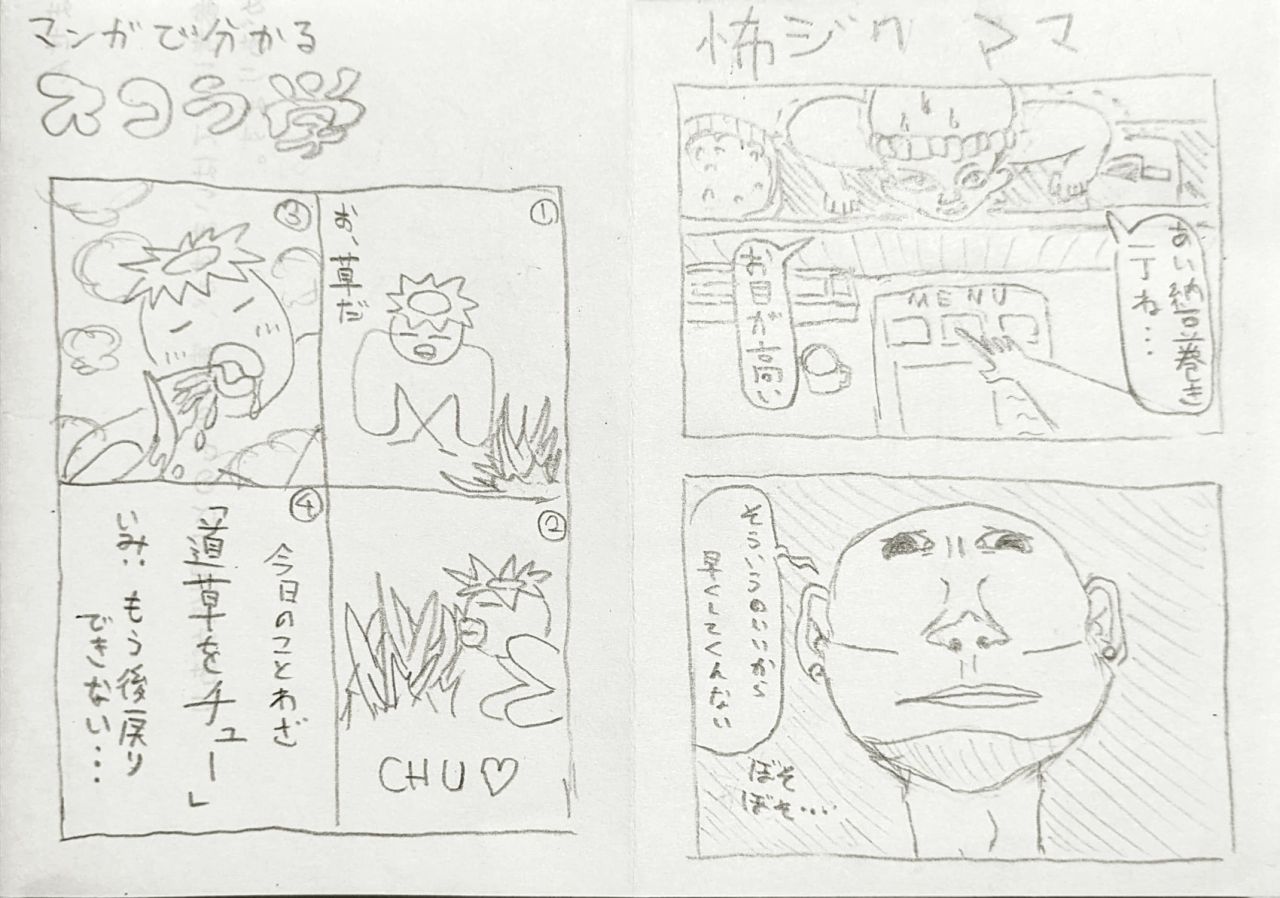 ママ
あい納豆巻き
一丁ね・・・
お目が高い
MENU
そういうのいいから
早くしてくんない
ぼそ
ぼそ・・・
マンガで分かる
スコラ学
①
お、草だ
②
CHU♡
③
④
今日のことわざ
「道草をチュー」
いみ: もう後戻り
できない・・・